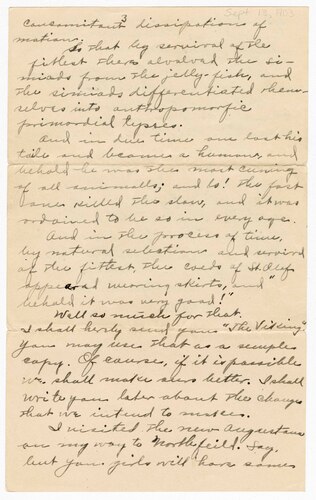 Sept 19, 1903
consomitant³ dissipation of
motion:
So that by servival of the
fittest there alvolved the si-
miads from the jelly-fish, and
the simiads differentiated them-
selves into anthropomorfic
primordial types.
And in due time one lost his
tale and became a humane, and
behold he was the most cuning
of all animalls; and lo! the fast
one killed the slow, and it was
ordained to be so in every age.
And in the process of time,
by natural selection and servival
of the fittest, the coeds of St. Olaf
appeared wearing skirts, and "
behold it was very good!"
Well so much for that.
I shall herby send you "The Viking"
you may use that as a sample
copy. Of course, if it is possible
we shall make ours better. I shall
write you later about the change
that we intend to makes.
I visited the new Augustana
on my way to Northfeild. Say,
but you girls will have some